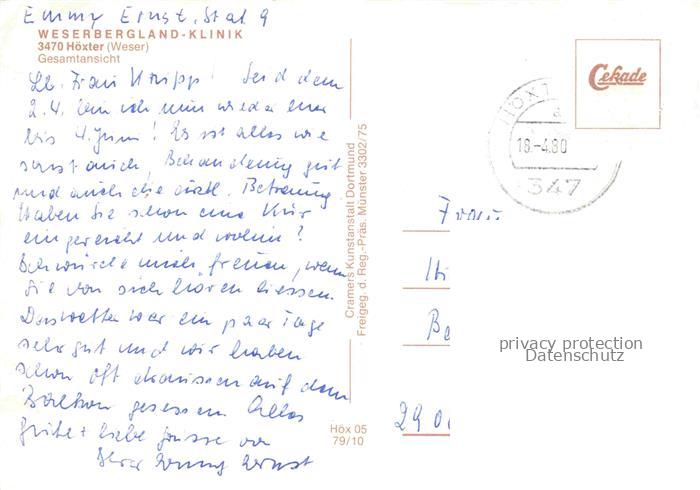 Emmy Ernst, Stat. 9
WESERBERGLAND-KLINIK
3470 Höxter (Weser)
Gesamtansicht
Lb. Frau Seid dem
2.4. bin ich nun wieder hier
bis 4. Juni! Es ist alles wie
sonst auch, Behandlung gut
und auch die ärztl. Betreuung.
Haben Sie schon eine Kur
eingereicht und wohin?
Ich würde mich freuen, wenn
Sie von sich hören liessen.
Das Wetter war ein paar Tage
sehr gut und wir haben
schon oft draussen auf dem
Balkon gesessen. Alles
Gute + liebe Grüsse von
Ihrer Emmy Ernst
Cramers Kunstanstalt Dortmund
Freigeg. d. Reg.-Präs. Münster 3302/75
Höx 05
79/10
Cekade
HÖXT
18.-4.80
347
Frau
Be
29 0
privacy protection
Datenschutz